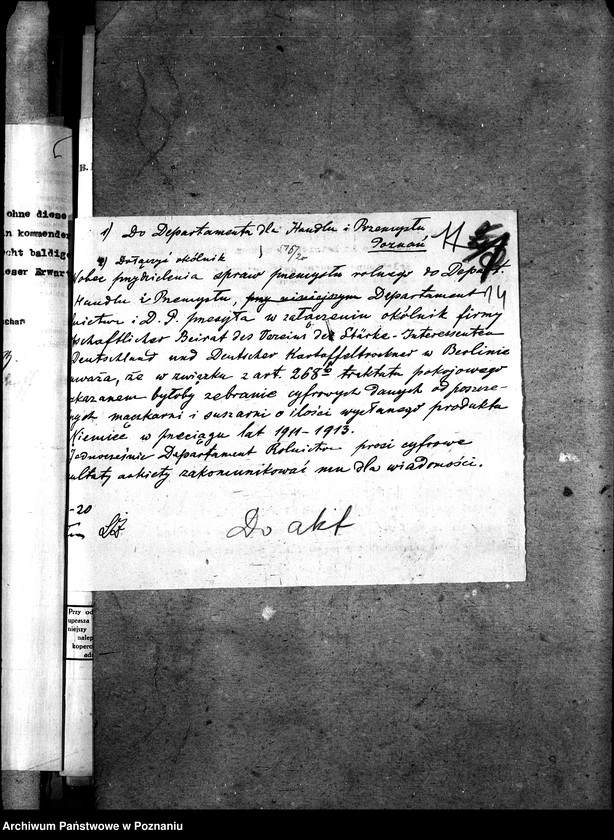 ohne diese
in kommender
cht baldige
ieser Erwart
schar
B.
1) Do Departamentu dla Handlu i Przemysłu
Poznań
14
2) Dołączyć okólnik
Wobec przydzielenia spraw przemysłu rolnego do Depart.
Handlu i Przemysłu, przy niniejszym Departament
nictwa i D. P. przesyła w załączeniu okólnik firmy
schaftlicher Beirat des Vereins der Stärke-Interessenten
Deutschland und Deutscher Kartoffeltrockner w Berlinie
uważa, że w związku z art. 268 traktatu pokojowego
wskazanem byłoby zebranie cyfrowych danych od poszcze-
nych mączkarni i suszarni o ilości wysłanego produktu
Niemiec w przeciągu lat 1911-1913.
Jednocześnie Departament Rolnictwa prosi cyfrowe
zultaty ankiety zakomunikować mu dla wiadomości.
-20
Do akt
Przy od
uprasza
niejszy
nalep
koperc
adr
Archiwum Państwowe w Poznaniu